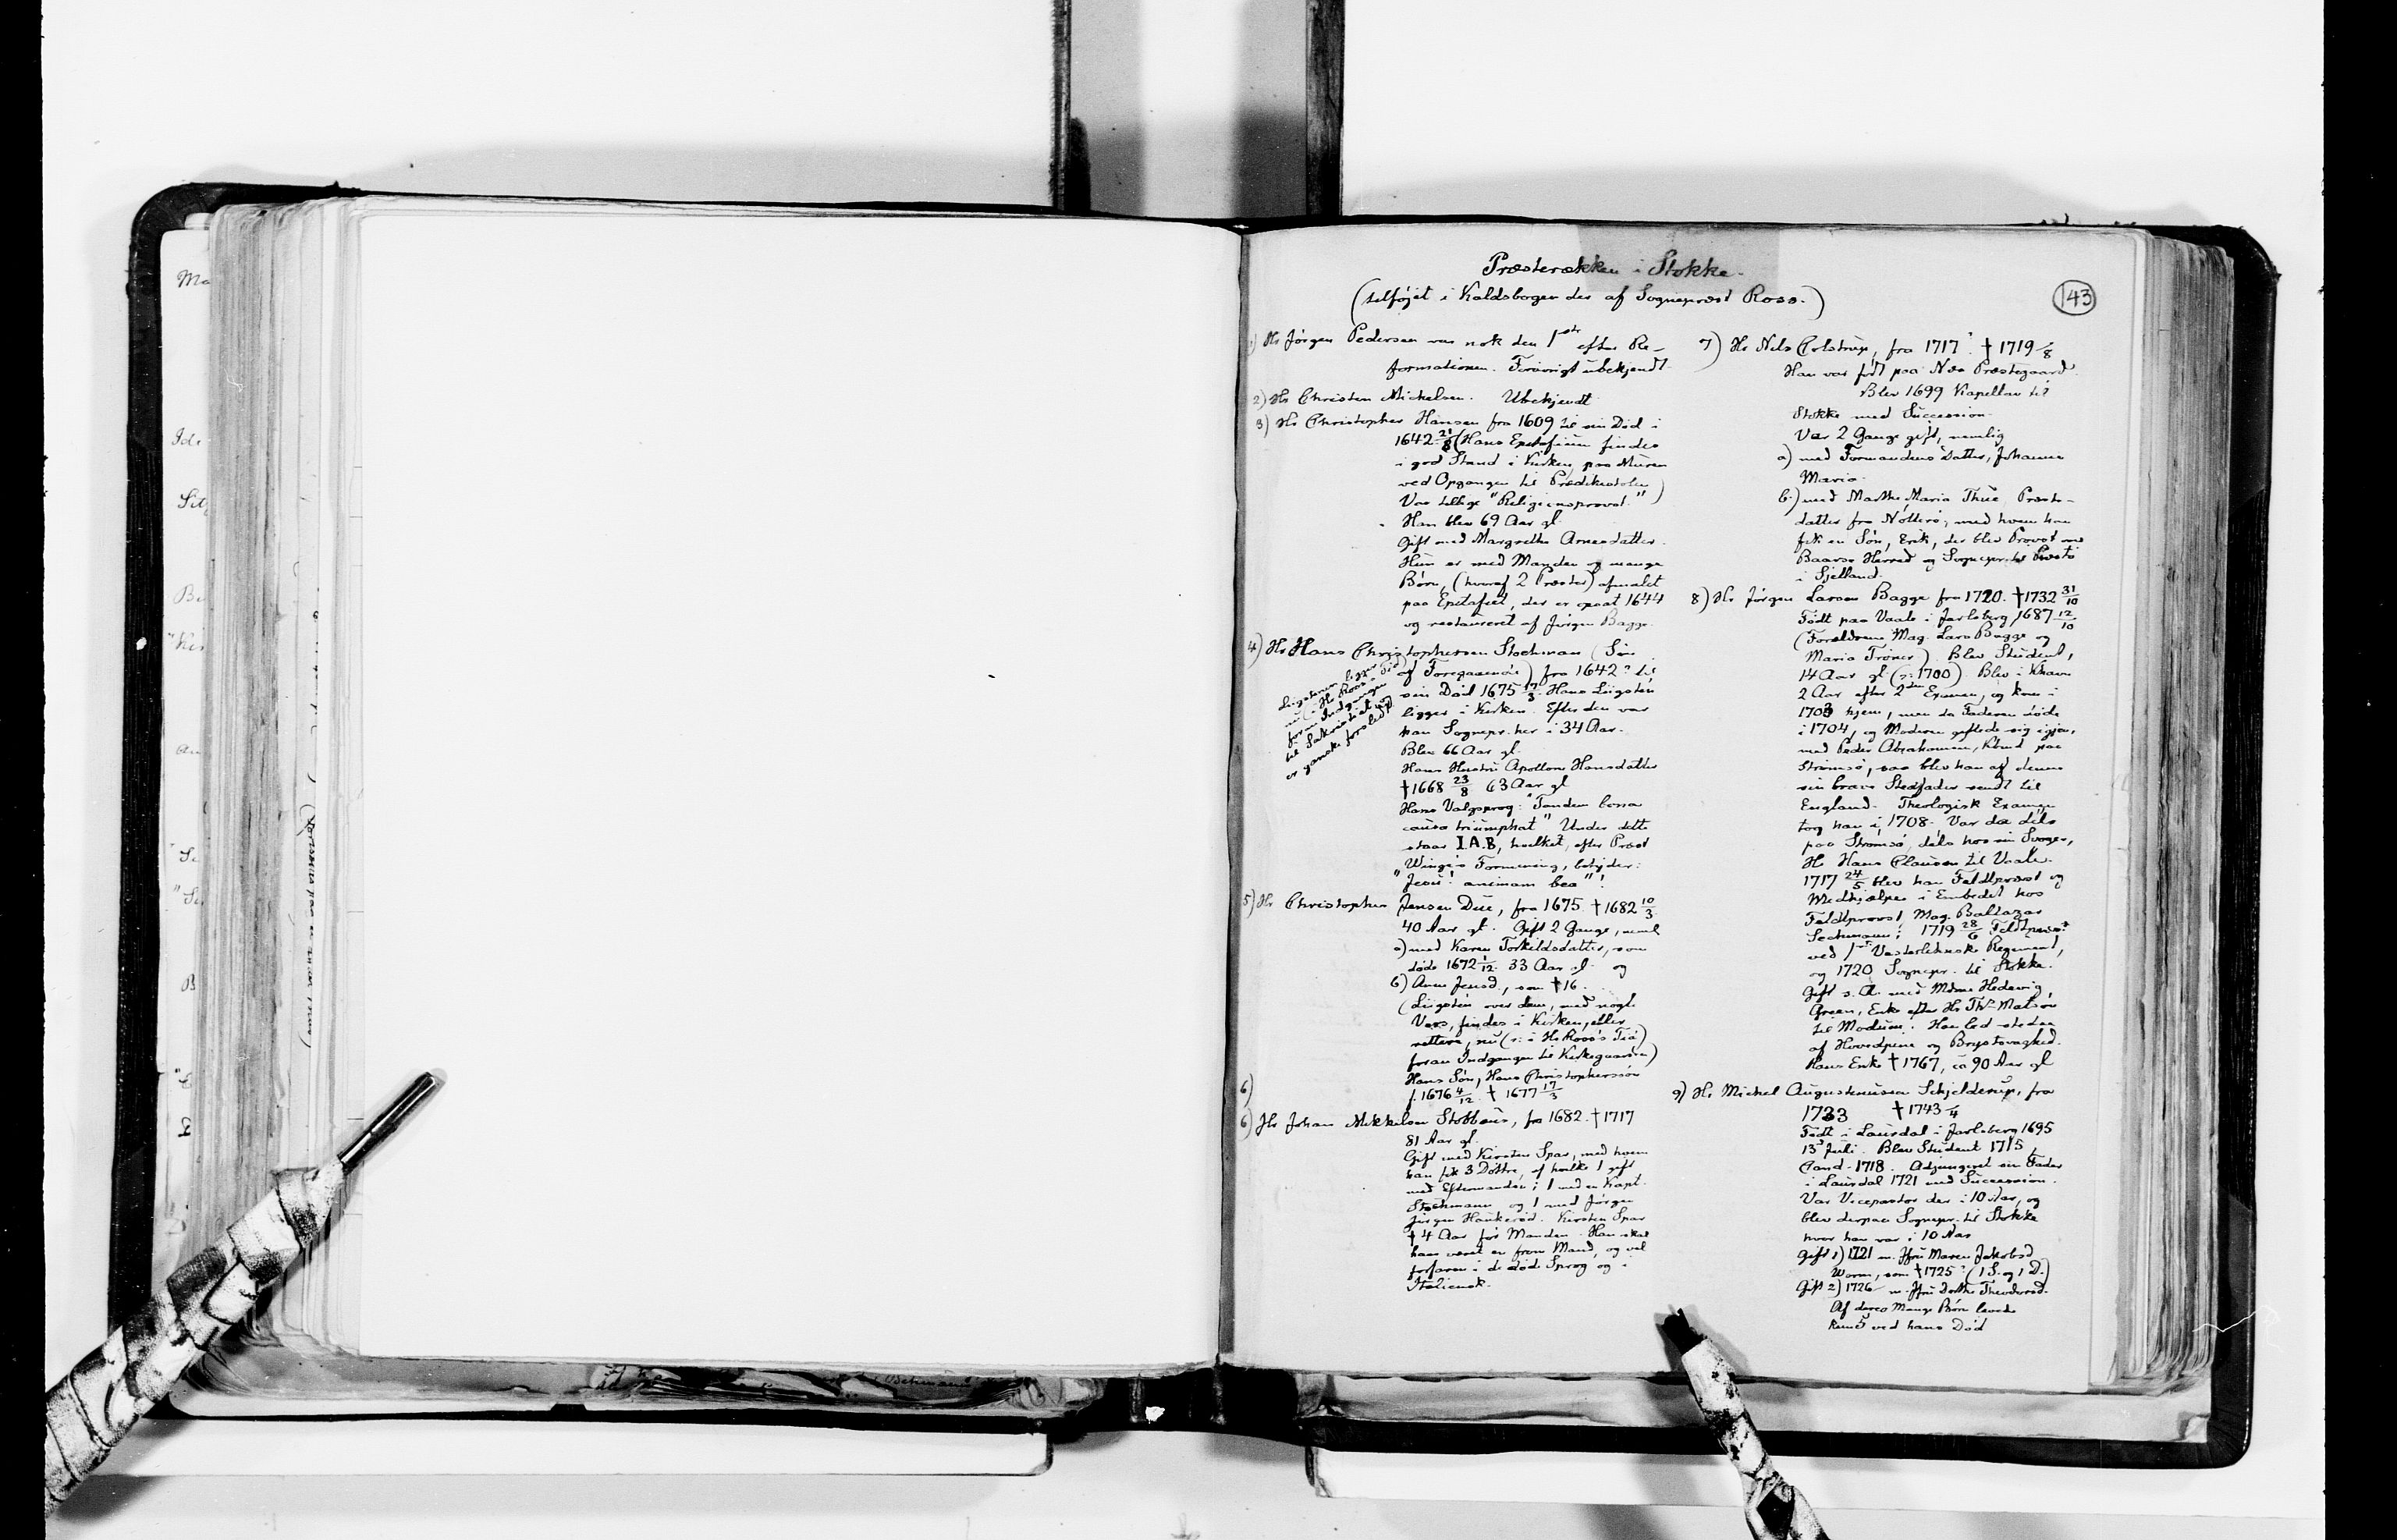 Præsterækken i Stokke.
(tilføjet i Kaldsbogen der af Sognepræst Ross.)
143
1) Hr Jörgen Pedersen var nok den 1ste efter Re-
formationen. Forövrigt ubekjendt.
2) Hr Christen Mickelsen. Ubekjendt
3) Hr Christopher Hansen fra 1609 til sin Död i
1642 21/8 (Hans Epitafium findes
i god Stand i Kirken, paa Muren
ved Opgangen til Prædikestolen)
Var tillige "Religionsprovst."
Han blev 69 Aar gl.
Gift med Margrethe Arnesdatter.
Hun er med Manden og mange
Börn, (hvoraf 2 Præster) afmalet
paa Epitafiet, der er opsat 1644
og restaureret af Jörgen Bagge.
4) Hr Hans Christophersen Stockman (Sön
af Foregaaende) fra 1642? til
sin Död 1675 17/3. Hans Ligsten
ligger i Kirken. Efter den var
han Sognepr. her i 34 Aar.
Blev 66 Aar gl.
Hans Hustru Apollone Hansdatter
†1668 23/8 63 Aar gl
Hans Valgsprog: "Tandem bona
causa triumphat" Under dette
staar I.A.B, hvilket, efter Præst
Winge's Formening, betyder:
"Jesu! animam bea"!
Ligstenen ligger
nu (i Hr Ross's Tid)
foran Indgangen
til Sakristiet og
er ganske forslidt.
5) Hr Christopher Jensen Due, fra 1675. †1682 10/3
40 Aar gl. Gift 2 Gange, neml
a) med Karen Torkildsdatter, som
döde 1672 1/12. 33 Aar gl. og
6) Anne Jensd., som †16 .
(Ligsten over dem, med nogle
Vers, findes i Kirken, eller
rettere, nu (ɔ: i Hr Ross's Tid)
foran Indgangen til Kirkegaarden)
6) Hans Sön, Hans Christophersön
f. 1676 4/12 † 1677 17/3
6) Hr Johan Mikkelsen Stobæus, fra 1682. †1717
81 Aar gl.
Gift med Kirsten Spar, med hvem
han fik 3 Döttre, af hvilke 1 gift
med Eftermanden; 1 med en Kapt.
Stockmann og 1 med Jörgen
Jörgen Haukeröd. Kirsten Spar
† 4 Aar för Manden. Han skal
have været en from Mand, og vel
forfaren i de döde Sprog og i
Italiensk.
7) Hr Nils Colstrup, fra 1717? † 1719 /8
Han var födt paa Næs Præstegaard.
Blev 1699 Kapellan til
Stokke med Succession.
Var 2 Gange gift, nemlig
a) med Formandens Datter, Johanne
Maria.
b.) med Marthe Maria Thue, Præste-
datter fra Nötterö, med hvem han
fik en Sön, Erik, der blev Provst over
Baarse Herred og Sognepr. til Præstö
i Sjelland.
8) Hr Jörgen Larsen Bagge fra 1720. †1732 31/10
Födt paa Vaale i Jarlsberg 1687 12/10
(Forældrene Mag. Lars Bagge og
Maria Tröner) Blev Student,
14 Aar gl. (ɔ: 1700) Blev i Khavn
2 Aar efter 2den Examen, og kom i
1703 hjem, men da Faderen döde
i 1704, og Moderen giftede sig igjen
med Peder Abrahamsen, Kbmd paa
Strömsö, saa blev han af denne
sin brave Stedfader sendt til
England. Theologisk Examen
tog han i 1708. Var da dels
paa Strömsö, dels hos sin Svoger,
Hr Hans Clausen til Vaale.
1717 24/5 blev han Feldtpræst og
Medhjælper i Embedet hos
Feldtprovst, Mag. Baltazar
Sechmann; 1719 28/6 Feldtpræst
ved 1ste Vesterlehnske Regiment,
og 1720 Sognepr. til Stokke.
Gift s. A. med Mdme Hedevig,
Green, Enke efter Hr Ths Matsön
til Modum. Han led steden
af Hovedpine og Brystsvaghed.
Hans Enke † 1767, ca 90 Aar gl
9) Hr Michel Augustinussen Schjelderup, fra
1733 †1743 /4
Födt i Laurdal i Jarlsberg 1695
13 Juli. Blev Student 1715,
Cand. 1718. Adjungeret sin Fader
i Laurdal 1721 med Succession.
Var Vicepastor der i 10 Aar, og
blev derpaa Sognepr. til Stokke
hvor han var i 10 Aar
Gift 1) 1721 m. Jfru Maren Jakobsd
Worm, som †1725? (1 S. og 1 D.)
Gift 2) 1726 m. Jfru Dorthe Theodorsd.
Af deres Mange Börn levede
kun 5 ved hans Död